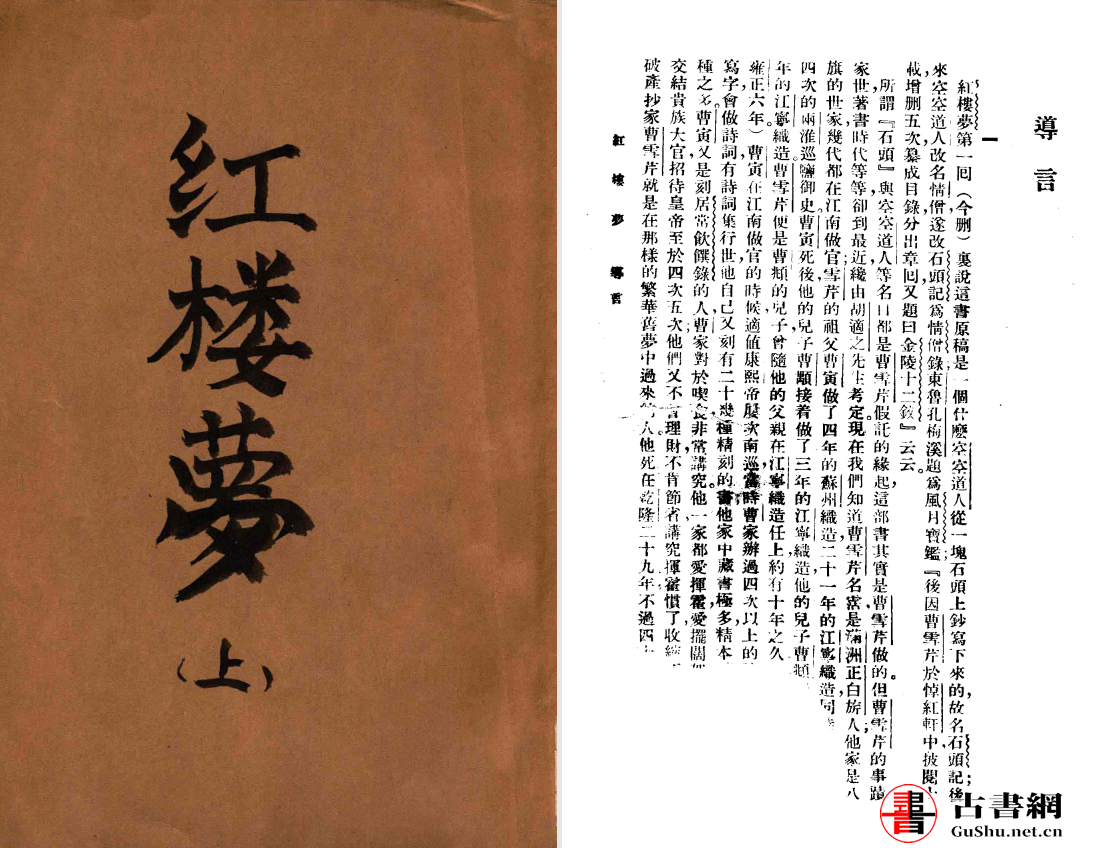 红楼梦
（上）
導言
一
紅樓夢第一回（今刪）裏說這書原稿是一個什麼空空道人從一塊石頭上鈔寫下來的，故名石頭記；後
來空空道人改名情僧，遂改石頭記爲情僧錄。東魯孔梅溪題爲風月寶鑑。『後因曹雪芹於悼紅軒中披閱
載，增刪五次，纂成目錄，分出章回，又題曰金陵十二釵。』云云。
所謂『石頭』與空空道人等名目都是曹雪芹假託的緣起，這部書其實是曹雪芹做的。但曹雪芹的事蹟
家世著書時代等等卻到最近纔由胡適之先生考定。現在我們知道曹雪芹名霑，是滿洲正白旂人；他家是八
旗的世家，幾代都在江南做官。雪芹的祖父曹寅做了四年的蘇州織造，二十一年的江寧織造，同
四次的兩淮巡鹽御史。曹寅死後，他的兒子曹顒接着做了三年的江寧織造，他的兒子曹頫
年的江寧織造。曹雪芹便是曹頫的兒子，曾隨他的父親在江寧織造任上約有十年之久
雍正六年）曹寅在江南做官的時候，適値康熙帝屢次南巡，當時曹家辦過四次以上的
寫字，會做詩詞，有詩詞集行世；他自己又刻有二十幾種精刻的書。他家中藏書極多，精本
種之多。曹寅又是刻居常飲饌錄的人，曹家對於喫食非常講究。他一家都愛揮霍，愛擺闊
交結貴族大官，招待皇帝至於四次五次；他們又不會理財，不肯節省；講究揮霍慣了，收
破產抄家。曹雪芹就是在那樣的繁華舊夢中過來的人。他死在乾隆二十九年，不過四
紅樓夢 導言
書
古書網
GuShu.net.cn